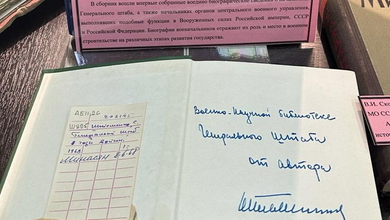 В сборник вошли впервые собранные воедино биографические сведения
Генерального штаба, а также начальников органов центрального военного управления,
выполнявших подобные функции в Вооруженных силах Российской империи, СССР
и Российской Федерации. Биографии военачальников отражают их роль и место в военном
строительстве на различных этапах развития государства.
В.И. Ск
МО СС
А
исто
Генеральный штаб
в годы войны
1968
Военно-Научной библиотеке
Генерального Штаба
от автора